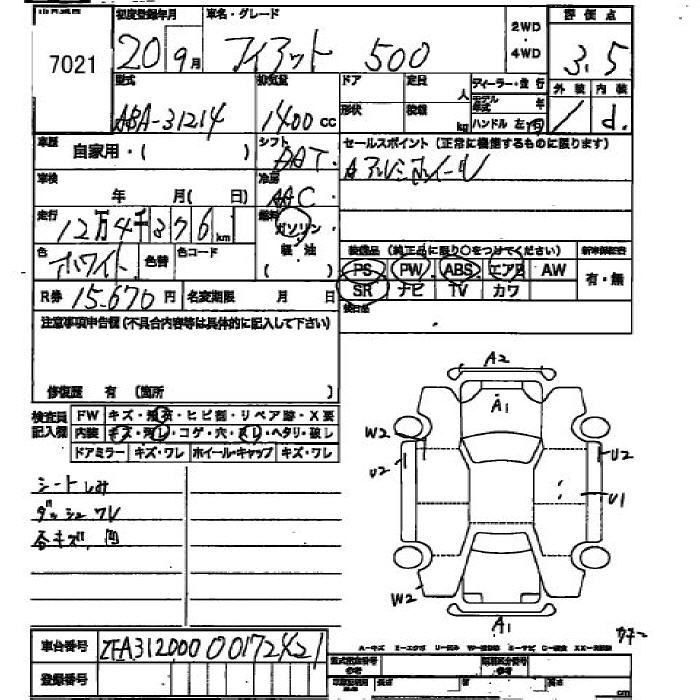 7021
初度登録年月
20年9月
車名・グレード
フィアット 500
2WD
・
4WD
評価点
3.5
型式
ABA-31214
排気量
1400cc
ドア
形状
定員
人
積載
kg
ディーラー・並行
モデル年式
年
ハンドル 左・右
外装
内装
d.
車歴
自家用・(　　)
シフト
AAT
セールスポイント(正常に機能するものに限ります)
アルミホイール
車検
年　月(　日)
冷房
AAC
走行
12万4千376km
燃料
ガソリン
軽・油
(　　)
色
ホワイト
色替
色コード
装備品(純正品に限り○をつけてください)
PS
PW
ABS
エアB
AW
SR
ナビ
TV
カワ
新車保証書
有・無
後日品
R券
15,670円
名変期限
月　日
注意事項申告欄(不具合内容等は具体的に記入して下さい)
修復歴　有(箇所　　)
検査員記入欄
FW
キズ・飛石・ヒビ割・リペア跡・X要
内装
キズ・汚レ・コゲ・穴・スレ・ヘタリ・破レ
ドアミラー
キズ・ワレ
ホイール・キャップ
キズ・ワレ
シートしみ
ダッシュワレ
各キズ、凹
A2
A1
W2
U2
U2
U1
W2
A1
車台番号
ZFA3120000017242 1
登録番号
cm